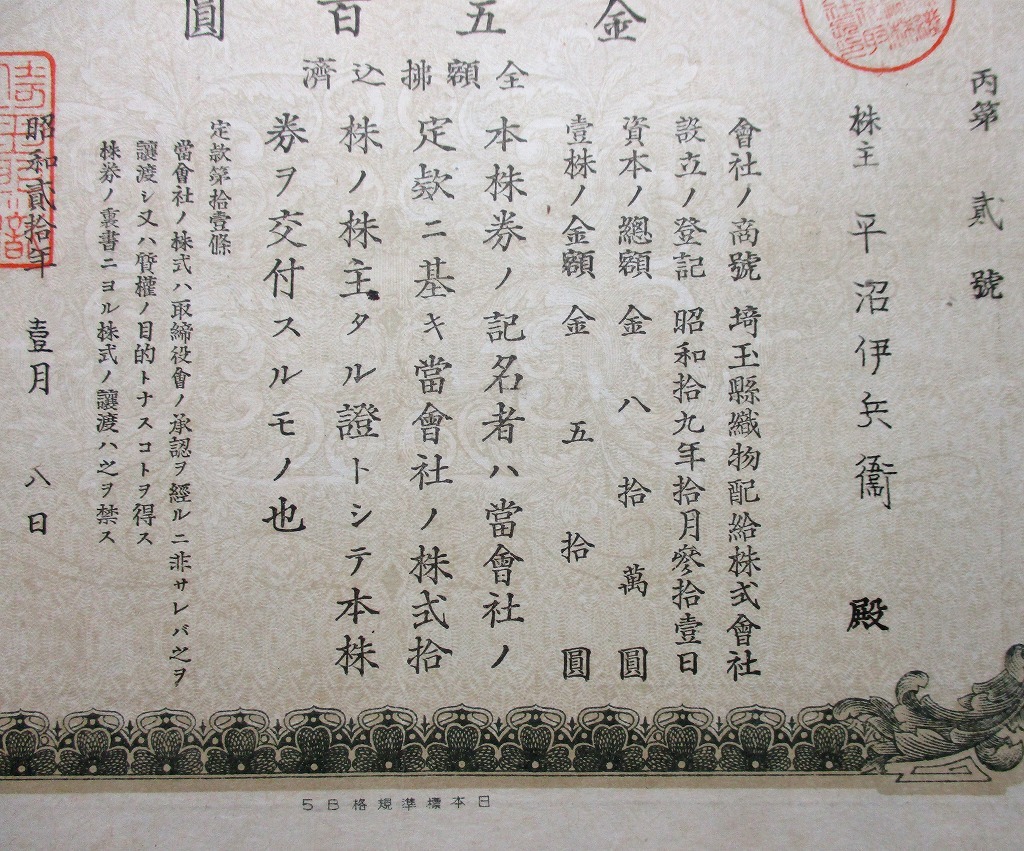 金五百圓
全額拂込濟
丙第貳號
株主 平沼伊兵衞 殿
會社ノ商號 埼玉縣織物配給株式會社
設立ノ登記 昭和拾九年拾月參拾壹日
資本ノ總額 金八拾萬圓
壹株ノ金額 金五拾圓
本株券ノ記名者ハ當會社ノ
定款ニ基キ當會社ノ株式拾
株ノ株主タル證トシテ本株
券ヲ交付スルモノ也
定款第拾壹條
當會社ノ株式ハ取締役會ノ承認ヲ經ルニ非サレバ之ヲ
讓渡シ又ハ質權ノ目的トナスコトヲ得ス
株券ノ裏書ニヨル株式ノ讓渡ハ之ヲ禁ス
昭和貳拾年 壹月 八日
日本標準規格B5